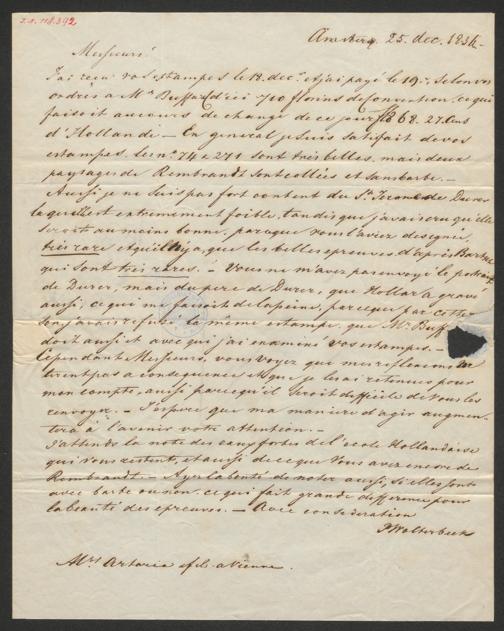 25. dec. 1836
Messieurs!
J'ai reçu vos estampes le 18. dec. et j'ai payé le 19 selon vos
ordres à Mr. d'ici 710 florins de Convention, ce qui
faisoit au cours de change de ce jour f 868. 27. Cens
d'Hollande — En general je suis satisfait de vos
estampes, les no. 74 e 271 sont très belles, mais deux
paysages de Rembrandt sont collées et sans barbe. —
Aussi je ne suis pas fort content du St. Jerome de Durer
laquelle est extremement foible, tandis que j'avais cru qu'elle
seroit au moins bonne, par que vous l'aviez designée,
très rare et qu'il n'y a, que les belles epreuves d'après Bartsch
qui sont très rares. — Vous ne m'avez pas envoyé le portrait
de Durer, mais du pere de Durer, que Hollar a gravé
aussi, ce qui me faisoit de la peine, parce que par cette
j'avais refusé la même estampe, que Mr.
doit aussi et avec qui j'ai examiné vos estampes. —
Cependant Messieurs, vous voyez que mes reflexions ne
tirent pas a consequence et que je les ai retenues pour
mon compte, aussi parce qu'il seroit difficile de vous les
renvoyer. — J'espere que ma maniere d'agir augmen-
tera à l'avenir votre attention. —
J'attends la note des eaux fortes de l'ecole Hollandaise
qui vous restent, et aussi de ce que vous avez encore de
Rembrandt. — Ayez la bonté de noter aussi, si elles sont
avec barbe ou non, ce qui fait grande difference pour
la beauté des epreuves. — Avec consideration
P Wolterbeek
Mrs Artaria e fils a Vienne.